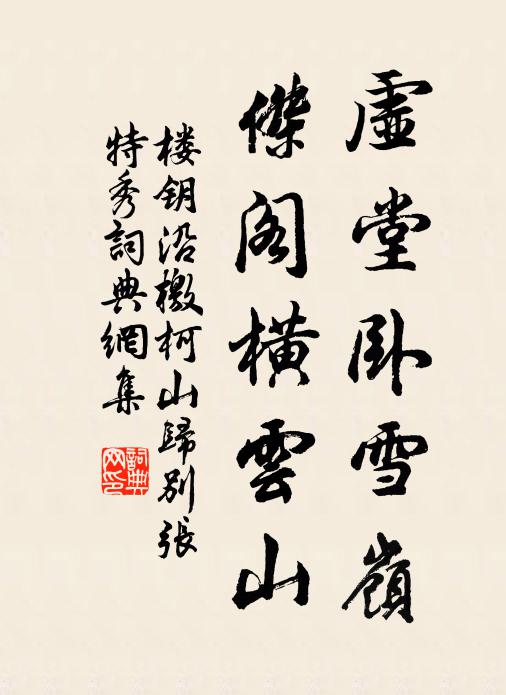 虛堂卧雪嶺
傑閣橫雲山
楼钥沿檄柯山歸别張
特秀詞典網集
詞典网印